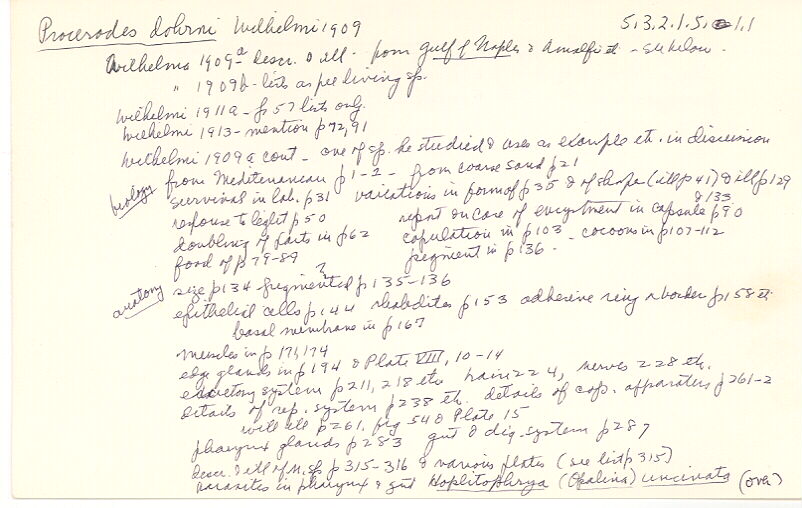 Procerodes dohrni Wilhelmi 1909 5.3.2.1.5. 1.1
Wilhelmi 1909a descr. & ill. from gulf of Naples & Amalfi etc - see below.
" 1909b - lists as per living sp.
Wilhelmi 1911a - p 57 lists only.
Wilhelmi 1913 - mention p 72, 91
Wilhelmi 1909a cont - one of sp. he studied & uses as example etc. in discussion
from Mediterranean p 1-2 - from coarse sand p 21
biology survival in lab. p 31 variations in form of p 35 & of shape (ill p 41) & ill p 129 & 133
response to light p 50 report on case of encystment in capsule p 90
doubling of parts in p 62 copulation in p 103 - cocoons in p 107-112
food of p 79-89 pigment in p 136.
anatomy size p 134 fragmented? p 135-136
epithelial cells p 144 rhabdites p 153 adhesive ring & border p 158
basal membrane in p 167
Muscles in p 171, 174
edge glands in p 194 & Plate VIII, 10-14
excretory system p 211, 218 etc brain 224, nerves 228 etc.
details of rep. system p 238 etc. details of cop. apparatus p 261-2
with ill p 261, fig 54 & Plate 15
pharynx glands p 283 gut & dig. system p 287
descr. & ill of n. sp p 315-316 & various plates (see list p 315)
parasites in pharynx & gut Hoplitophrya (Opalina) uncinata (over)